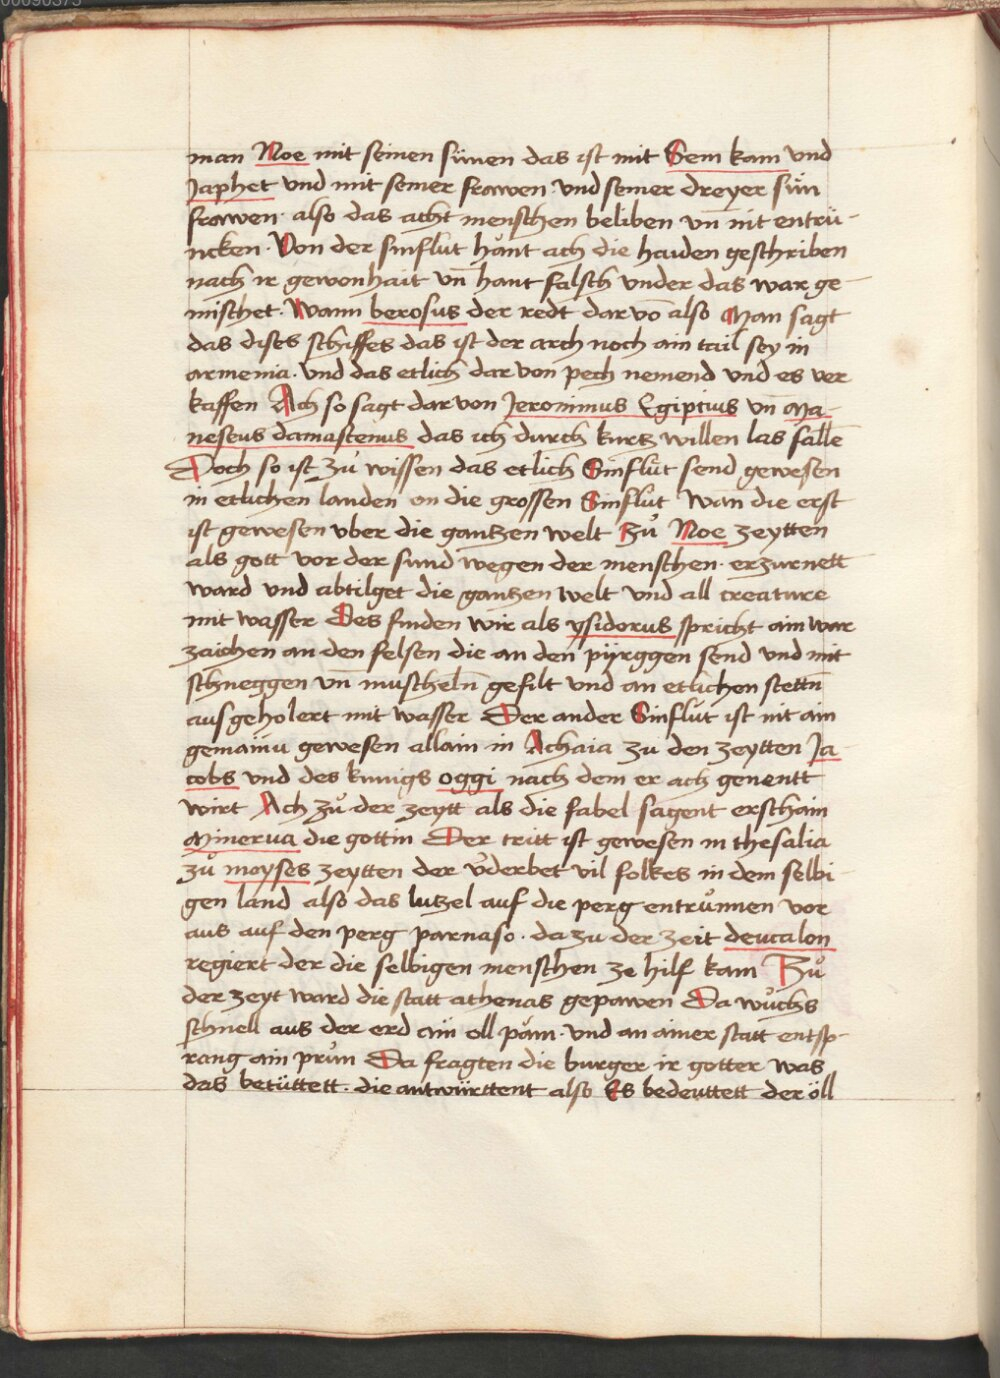 man Noe mit seinen sünen das ist mit Sem kam vnd
Japhet vnd mit seiner frawen vnd seiner dreyer sün
frawen. also das acht menschen beliben vn̄ nit entrü-
ncken. Von der sinflut hǎnt ach die haiden geschriben
nach ir gewonhait vn̄ hant falsch vnder das war ge-
mischet. Wann berosus der redt dar vō also Man sagt
das dises schiffes das ist der arch noch ain tail sey in
armenia. vnd das etlich dar von pech nemend vnd es ver
kaffen Ach so sagt dar von Jeronimus Egiptius vn̄ Ma-
neseus damascenus das ich durch kurtz willen las fallē
Doch so ist zů wissen das etlich Sinflůt send gewesen
in etlichen landen on die grossen Sinflůt Wan die erst
ist gewesen vber die gantzen welt Zů Noe zeytten
als gott vor der sund wegen der menschen. erzurnett
ward vnd abtilget die gantzen welt vnd all creature
mit wasser Des finden wir als ysiderus spricht ain war
zaichen an den felsen die an den pÿrggen send vnd mit
schneggen vn̄ muscheln̄ gefilt vnd an etlichen stettn̄
aus geholert mit wasser Der ander Sinflůt ist nit ain
gemainu gewesen allain in Achaia zu den zeytten Ja-
cobs vnd des kunigs oggi nach dem er ach genentt
wirt Ach zů der zeytt als die fabel sagent erschain
Minerua die gottin Der tritt ist gewesen in thesalia
zů moyses zeytten der v̄derbet vil folkes in dem selbi-
gen land also das lutzel auf die perg entrůnnen vor
aus auf den perg parnaso. da zu der zeit deucalon
regiert der die selbigen menschen ze hilf kam Zů
der zeyt ward die statt athenas gepawen Da wůchs
schnell aus der erd ain öll pǎm. vnd an ainer statt entsp-
rang ain průn Da fragten die burger ir gotter was
das betüttett. die antwürttent also Es bedeuttett der öll